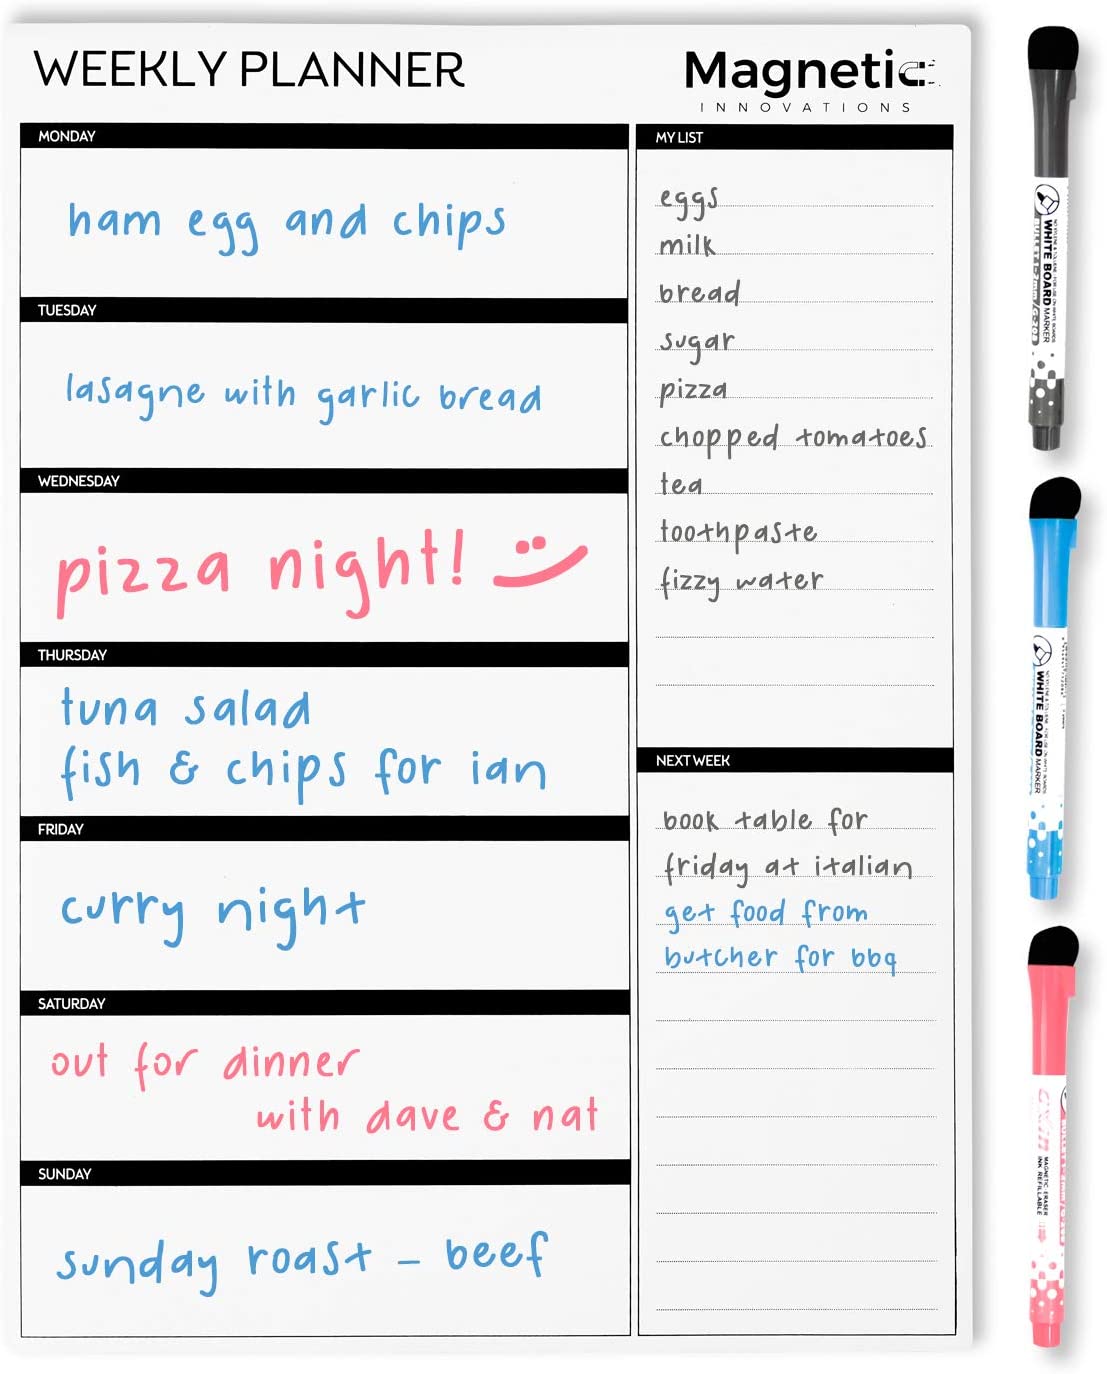 WEEKLY PLANNER
Magnetic
INNOVATIONS
MONDAY
ham egg and chips
TUESDAY
lasagne with garlic bread
WEDNESDAY
pizza night!
THURSDAY
tuna salad
fish & chips for ian
FRIDAY
curry night
SATURDAY
out for dinner
with dave & nat
SUNDAY
sunday roast - beef
MY LIST
eggs
milk
bread
sugar
pizza
chopped tomatoes
tea
toothpaste
fizzy water
NEXT WEEK
book table for
friday at italian
get food from
butcher for bbq
WHITE BOARD MARKER
WHITE BOARD MARKER
MAGNETIC ERASER
INK REFILLABLE